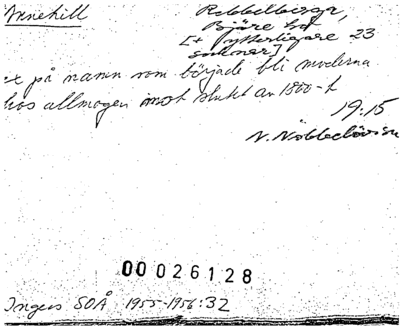 Annehill
Rebbelberga,
Bjäre hd
[+ ytterligare 23
socknar]
ex på namn som började bli moderna
hos allmogen mot slutet av 1800-t
19:15
N. Nöbbelövsm
00026128
Ingers SOÅ 1955-1956:32